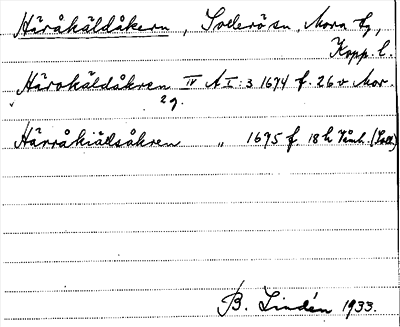 Häråkäldåkern, Sollerö sn, Mora tg,
Kopp. l.
Härokäldåkren IV A I: 3 1694 f. 26 v Mor.
2 g.
Härråkiällsåkren " 1695 f. 18 h Våmh. (Soll)
B. Lindén 1933.